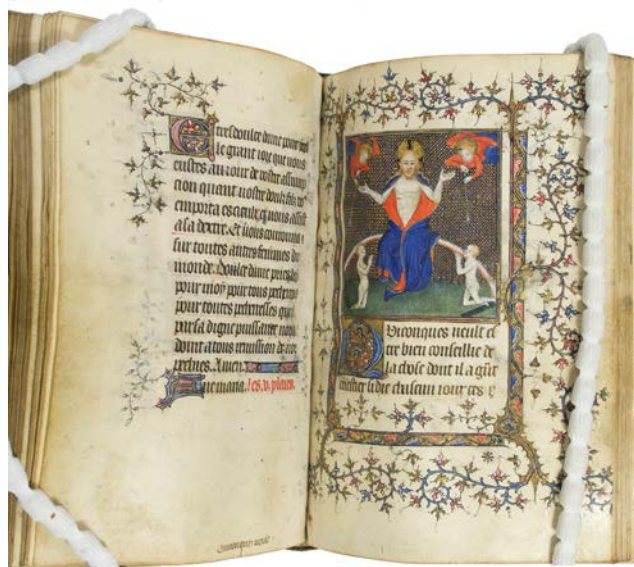 Et tresdoulce dame pour ycel
le grant ioie que vous
eustes au iour de vostre assump
cion quant vostre doulz filz vos
emporta es cieulx et vous assist
a sa dextre. Et vous couronna
sur toutes autres femmes du
monde. Doulce dame pries lui
pour moy pour tous pecheurs
pour toutes pecheresses que
par sa digne puissance nous
doint a tous remission de nos
pechies. Amen.
Aue maria. les .v. plaies.
Quiconques veult
Quiconques veult es
tre bien conseillie de
la chose dont il a grāt
mestier si die chascun iour ces v